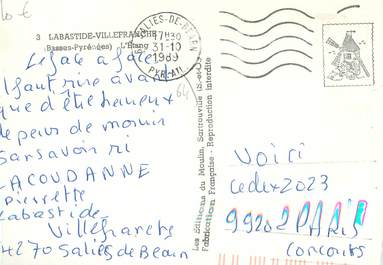 10 €
3 LABASTIDE-VILLEFRANCHE
(Basses-Pyrénées) L'Étang
SALIES-DE-BEARN
17H30
31-10
1989
PYR.-ATL.
64
Les Editions du Moulin, Sartrouville (S.-et-O.)
Fabrication Française - Reproduction interdite
il faut rire avant
que d'être heureux
de peur de mourir
sans avoir ri
LACOUDANNE
Pierrette
Labastide
Villefranche
64270 Salies de Bearn
Voici
cedex 2023
99202 PARIS
Concours